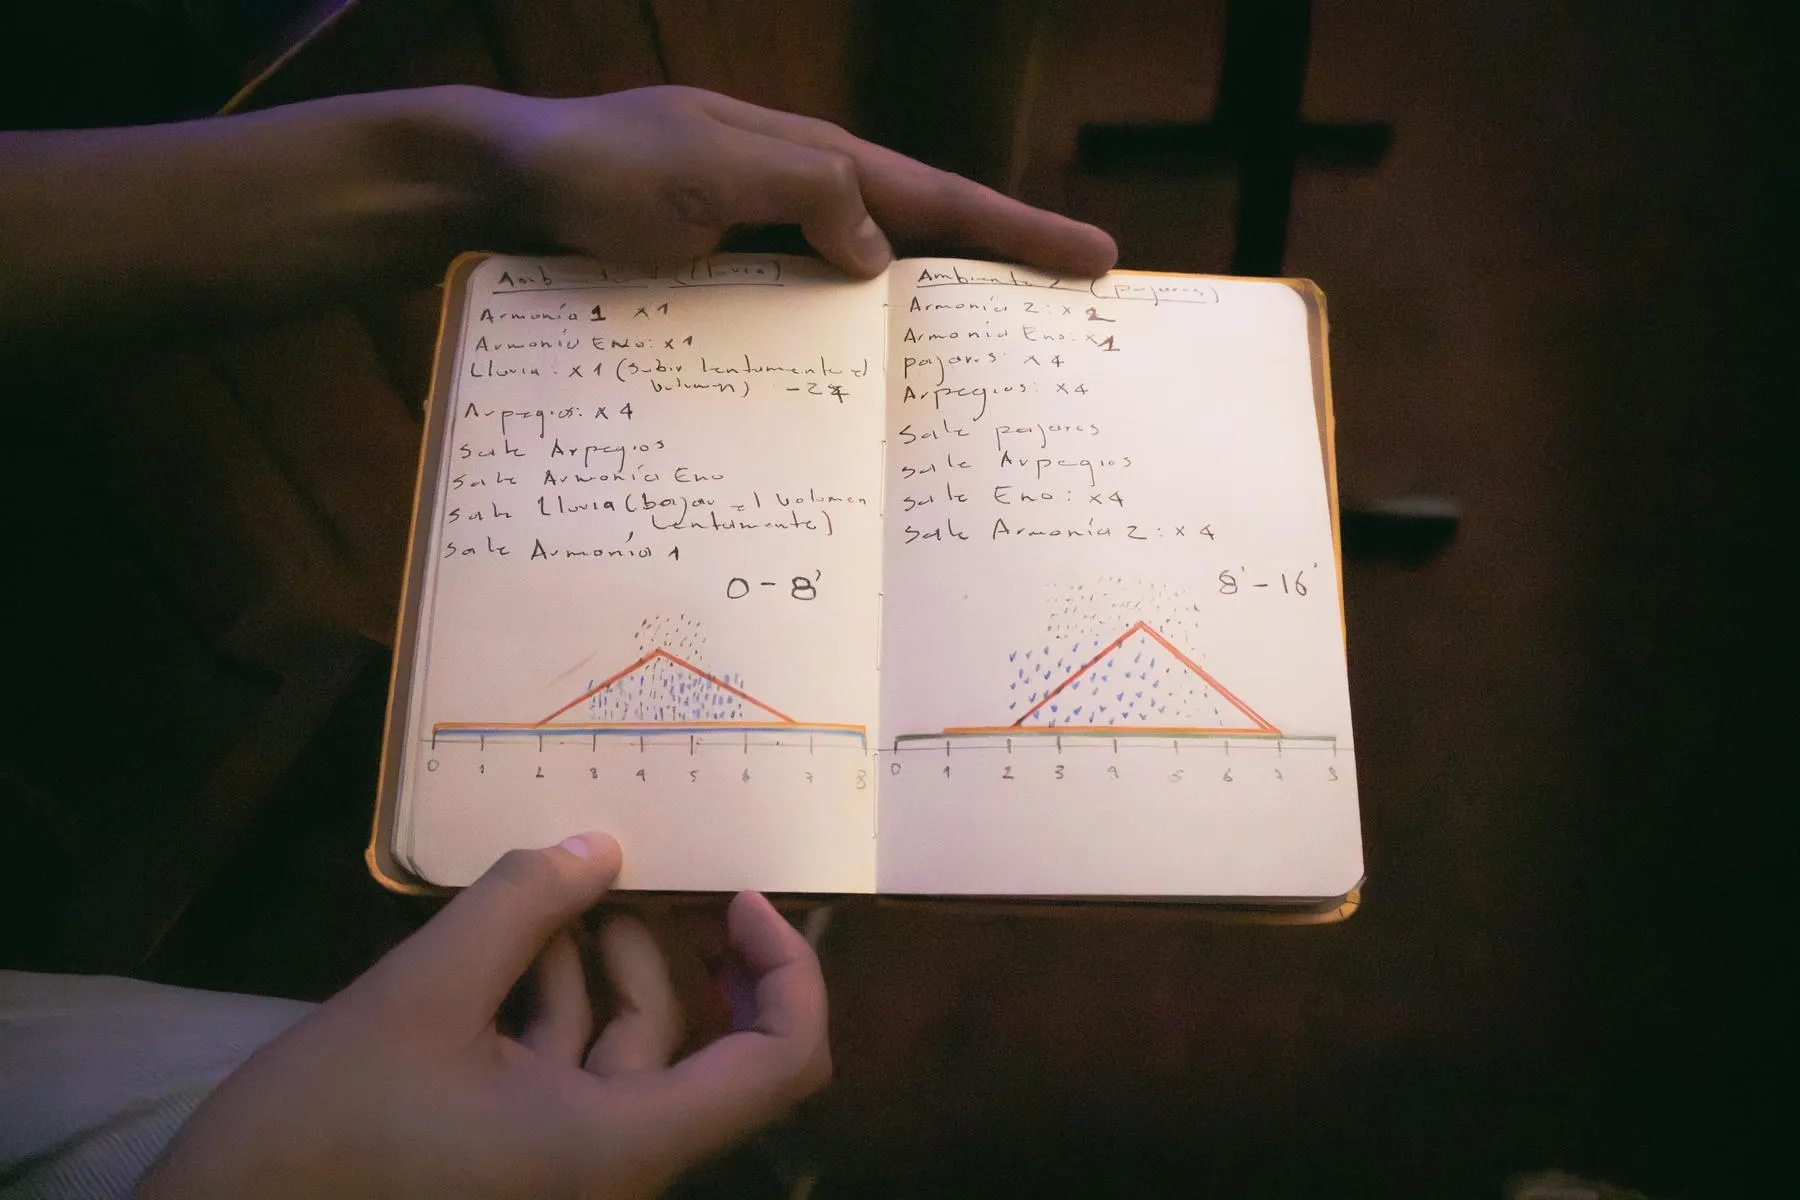 Ambiente 1 (Lluvia)
Armonía 1 x1
Armonía Eno: x1
Lluvia: x1 (subir lentamente el
volumen) -24
Arpegios: x4
Sale Arpegios
Sale Armonía Eno
Sale Lluvia (bajar el volumen
lentamente)
Sale Armonía 1
0-8'
0 1 2 3 4 5 6 7 8
Ambiente 2 (pajaros)
Armonía 2: x
Armonía Eno: x1
pajaros: x4
Arpegios: x4
Sale pajaros
Sale Arpegios
Sale Eno: x4
Sale Armonía 2: x4
8'-16'
0 1 2 3 4 5 6 7 8